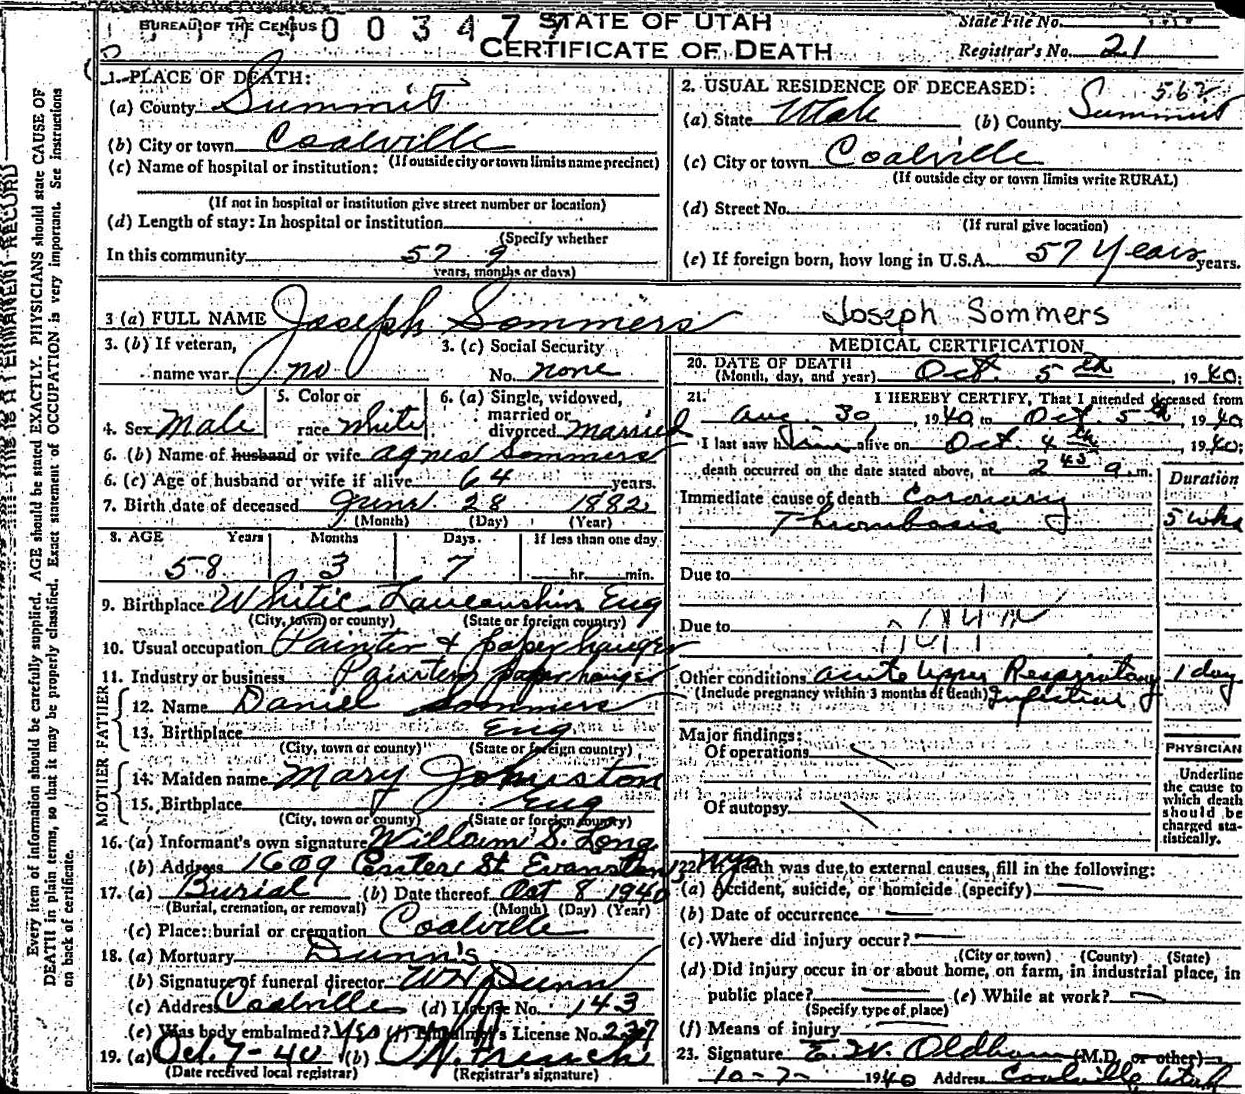 BUREAU OF THE CENSUS 003477 STATE OF UTAH State File No.
CERTIFICATE OF DEATH Registrar's No. 21
1. PLACE OF DEATH:
(a) County Summit
(b) City or town Coalville
(If outside city or town limits name precinct)
(c) Name of hospital or institution:
(If not in hospital or institution give street number or location)
(d) Length of stay: In hospital or institution
(Specify whether
In this community 57 9
years, months or days)
2. USUAL RESIDENCE OF DECEASED: 562
(a) State Utah (b) County Summit
(c) City or town Coalville
(If outside city or town limits write RURAL)
(d) Street No.
(If rural give location)
(e) If foreign born, how long in U.S.A. 57 Years years.
3 (a) FULL NAME Joseph Sommers Joseph Sommers
3. (b) If veteran, name war no
3. (c) Social Security No. none
4. Sex Male
5. Color or race White
6. (a) Single, widowed, married or divorced Married
6. (b) Name of husband or wife Agnes Sommers
6. (c) Age of husband or wife if alive 64 years.
7. Birth date of deceased June 28 1882
(Month) (Day) (Year)
8. AGE Years Months Days If less than one day
58 3 7 hr. min.
9. Birthplace Eng
(City, town or county) (State or foreign country)
10. Usual occupation Painter & paper hanger
11. Industry or business Painter paper hanger
FATHER
12. Name Daniel Sommers
13. Birthplace Eng
(City, town or county) (State or foreign country)
MOTHER
14. Maiden name Mary Johnston
15. Birthplace Eng
(City, town or county) (State or foreign country)
16. (a) Informant's own signature William S. Long
(b) Address 1609 Center St Evanston, Wyo
17. (a) Burial (b) Date thereof Oct 8 1940
(Burial, cremation, or removal) (Month) (Day) (Year)
(c) Place: burial or cremation Coalville
18. (a) Mortuary Dunn's
(b) Signature of funeral director W H Dunn
(c) Address Coalville (d) License No. 143
(e) Was body embalmed? Yes (f) Embalmer's License No. 237
19. (a) Oct. 7-40 (b)
(Date received local registrar) (Registrar's signature)
MEDICAL CERTIFICATION
20. DATE OF DEATH
(Month, day, and year) Oct. 5th, 1940;
21. I HEREBY CERTIFY, That I attended deceased from
Aug. 30, 1940 to Oct. 5th, 1940
I last saw him alive on Oct. 4th, 1940;
death occurred on the date stated above, at 2 45 a.m.
Duration
Immediate cause of death Coronary
Thrombosis 5 wks
Due to
Due to
Other conditions acute Upper Respiratory 1 day
(Include pregnancy within 3 months of death) Infection
Major findings:
Of operations
Of autopsy
PHYSICIAN
Underline
the cause to
which death
should be
charged sta-
tistically.
22. If death was due to external causes, fill in the following:
(a) Accident, suicide, or homicide (specify)
(b) Date of occurrence
(c) Where did injury occur?
(City or town) (County) (State)
(d) Did injury occur in or about home, on farm, in industrial place, in
public place? (e) While at work?
(Specify type of place)
(f) Means of injury
23. Signature E. W. Oldham (M.D. or other)
10-7- 1940 Address Coalville, Utah
Every item of information should be carefully supplied. AGE should be stated EXACTLY. PHYSICIANS should state CAUSE OF
DEATH in plain terms, so that it may be properly classified. Exact statement of OCCUPATION is very important. See instructions
on back of certificate.